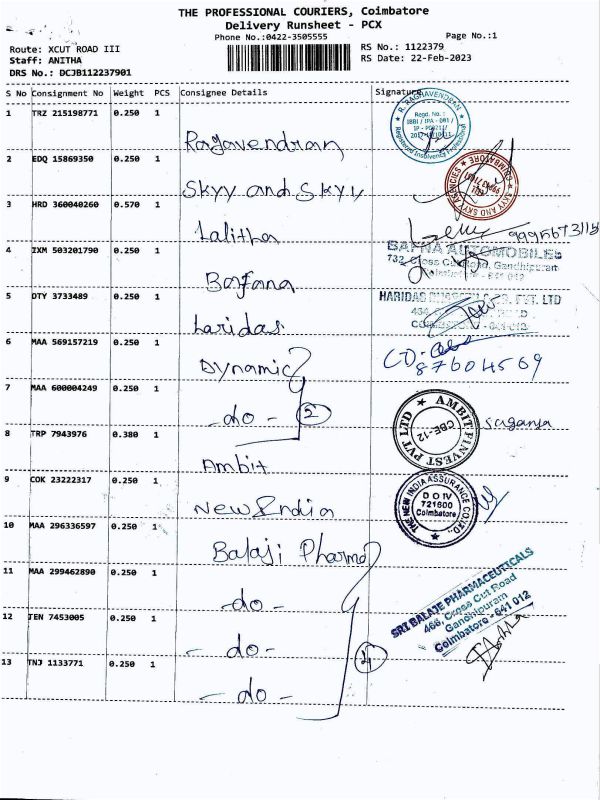 THE PROFESSIONAL COURIERS, Coimbatore
Delivery Runsheet - PCX
Phone No.:0422-3505555
Page No.:1
Route: XCUT ROAD III
RS No.: 1122379
Staff: ANITHA
RS Date: 22-Feb-2023
DRS No.: DCJB112237901
S No Consignment No Weight PCS Consignee Details Signature
1 TRZ 215198771 0.250 1
Ragavendran
R. RAGHAVENDRAN
Regd. No.:
IBBI / IPA - 001 /
Registered Insolvency Professional
2 EDQ 15869350 0.250 1
Skyy and Skyy
SKYY AND SKYY AGENCIES
COIMBATORE
3 HRD 360040260 0.570 1
Lalitha
4 IXM 503201790 0.250 1
Bafana
BAFNA AUTOMOBILES
732, Cross Cut Road, Gandhipuram
Coimbatore - 641 012
5 DTY 3733489 0.250 1
Haridas
HARIDAS PVT. LTD
COIMBATORE - 641 012
6 MAA 569157219 0.250 1
Dynamic
87604569
7 MAA 600004249 0.250 1
- do - 2
8 TRP 7943976 0.380 1
Ambit
AMBIT FINVEST PVT LTD
CBE-12
9 COK 23222317 0.250 1
New India
THE NEW INDIA ASSURANCE CO. LTD.
D O IV
721600
Coimbatore
10 MAA 296336597 0.250 1
Balaji Pharma
11 MAA 299462890 0.250 1
- do -
SRI BALAJE PHARMACEUTICALS
466, Cross Cut Road
Gandhipuram
Coimbatore - 641 012
12 TEN 7453005 0.250 1
- do -
4
13 TNJ 1133771 0.250 1
- do -